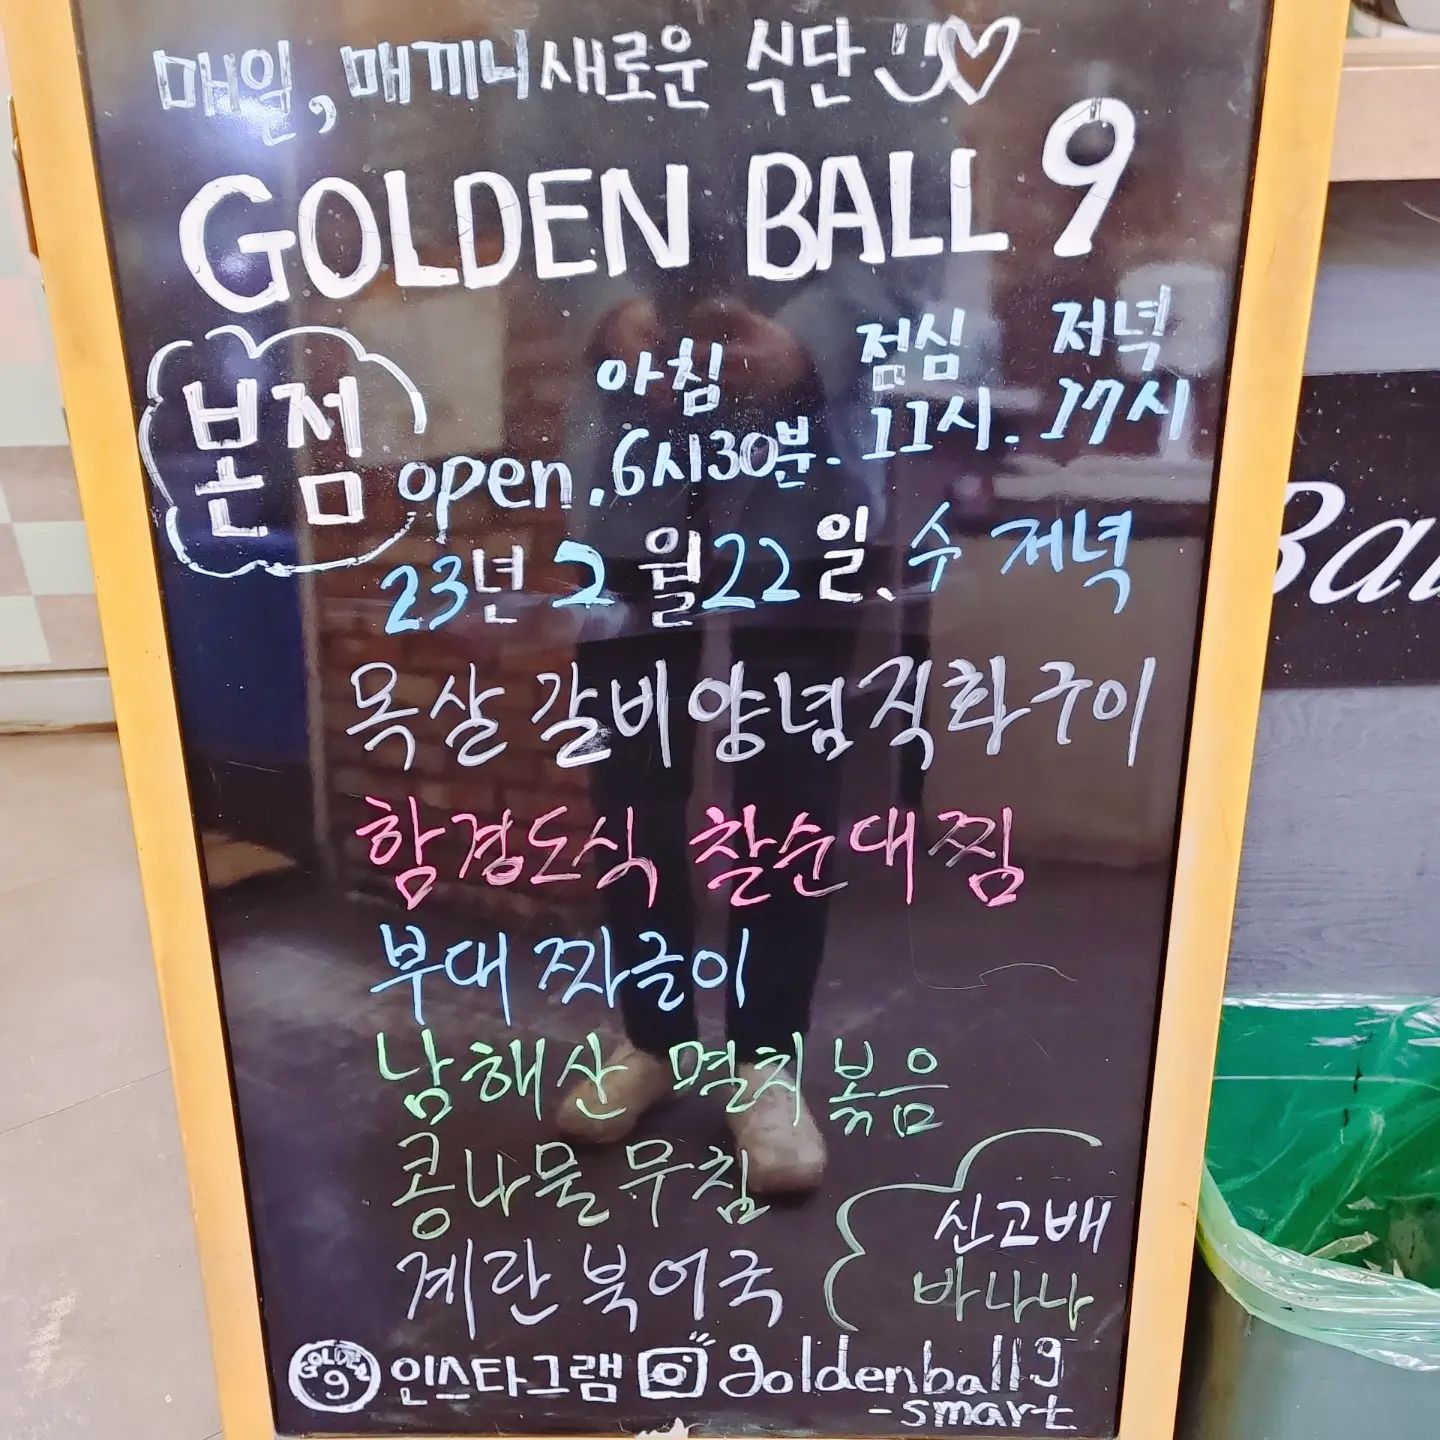 매일, 매끼니 새로운 식단
GOLDEN BALL 9
본점
아침 점심 저녁
open. 6시30분. 11시. 17시
23년 2월 22일. 수 저녁
목살 갈비양념직화구이
함경도식 찰순대찜
부대 짜글이
남해산 멸치볶음
콩나물무침
계란 북어국
신고배
바나나
GOLDEN 9 인스타그램 goldenball9
-smart
Ba